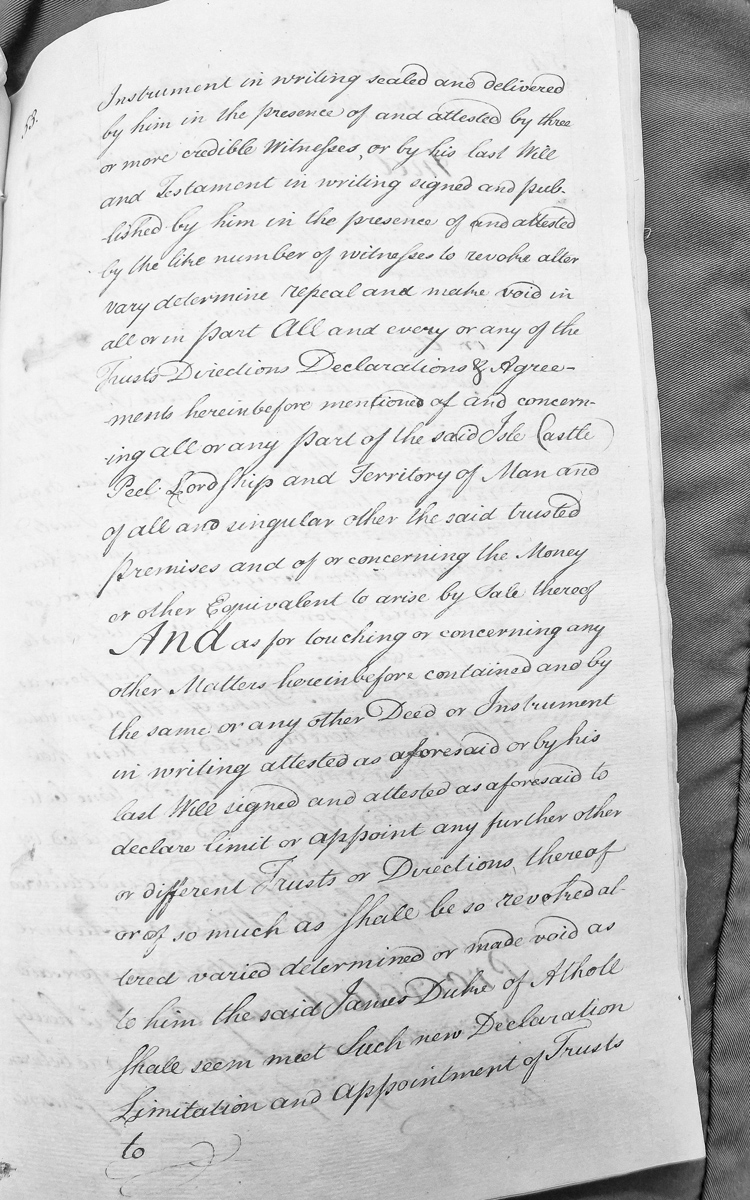 53.
Instrument in writing sealed and delivered
by him in the presence of and attested by three
or more credible Witnesses, or by his last Will
and Testament in writing signed and pub-
-lished by him in the presence of and attested
by the like number of witnesses to revoke alter
vary determine repeal and make void in
all or in part All and every or any of the
Trusts Directions Declarations & Agree-
ments hereinbefore mentioned of and concern-
ing all or any Part of the said Isle Castle
Peel Lordship and Territory of Man and
of all and singular other the said trusted
premises and of or concerning the Money
or other Equivalent to arise by Sale thereof
And as for touching or concerning any
other Matters hereinbefore contained and by
the same or any other Deed or Instrument
in writing attested as aforesaid or by his
last Will signed and attested as aforesaid to
declare limit or appoint any further other
or different Trusts or Directions thereof
or of so much as shall be so revoked al-
tered varied determined or made void as
to him the said James Duke of Atholl
shall seem meet Such new Declaration
Limitation and Appointment of Trusts
to